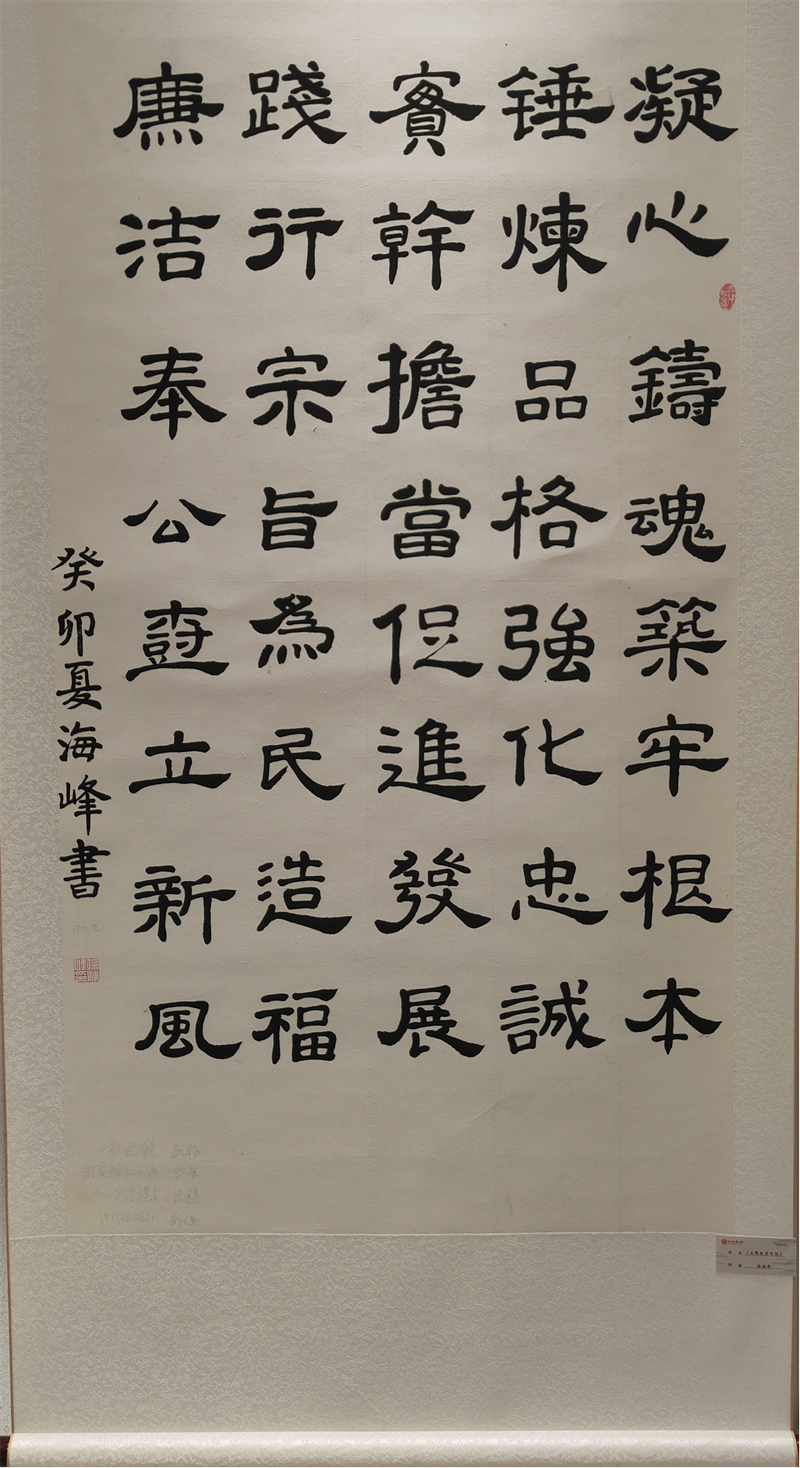 凝心鑄魂築牢根本
锤煉品格強化忠誠
實幹擔當促進發展
踐行宗旨為民造福
廉洁奉公樹立新風
癸卯夏海峰書